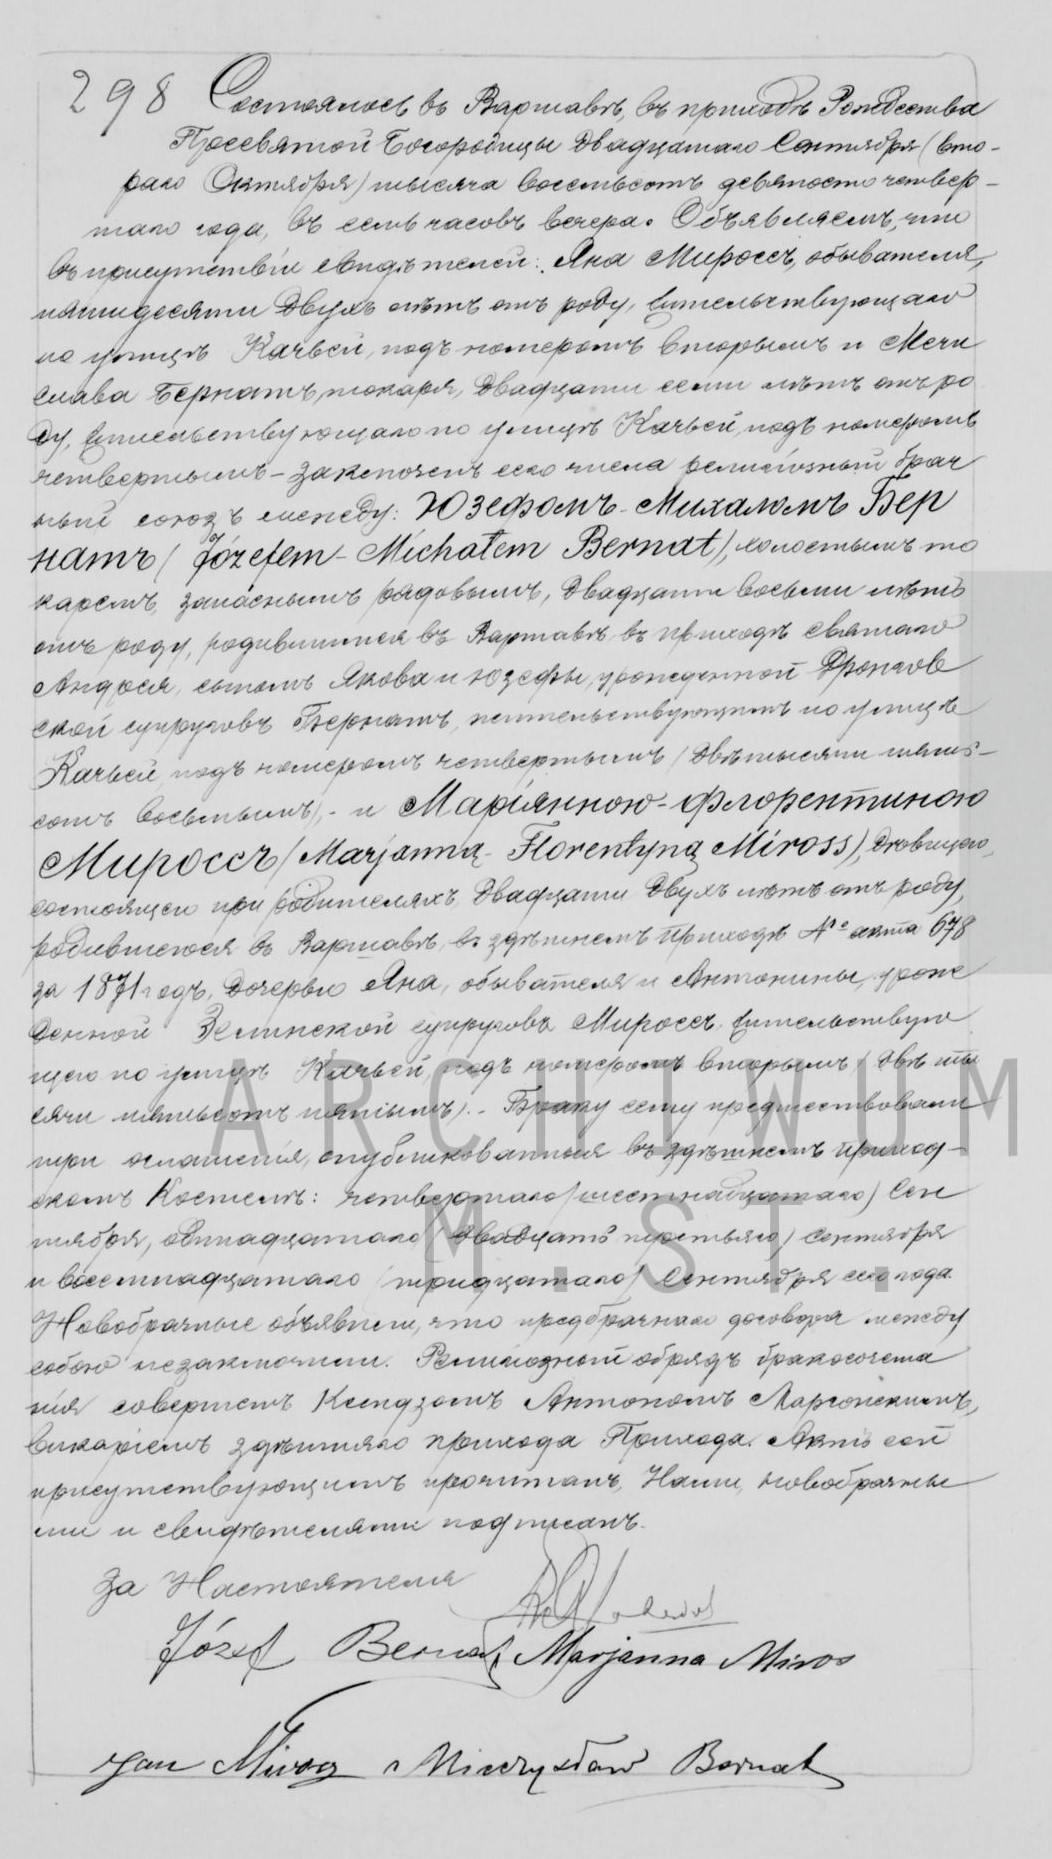 298 Состоялось въ Варшавѣ, въ приходѣ Рождества
Пресвятой Богородицы Двадцатаго Сентября (вто-
раго Октября) тысяча восемьсотъ девяносто четвер-
таго года, въ семь часовъ вечера. Объявляемъ, что
въ присутствіи свидѣтелей: Яна Миросъ, обывателя,
пятидесяти Двухъ лѣтъ отъ роду, жительствующаго
по улицѣ Качьей, подъ номеромъ вторымъ и Мечи
слава Бернатъ, токаря, Двадцати семи лѣтъ отъ ро
ду, жительствующаго по улицѣ Качьей, подъ номеромъ
четвертымъ – заключенъ сего числа религіозный брач
ный союзъ между: Юзефомъ-Михаломъ Бер
натъ (Józefem-Michałem Bernat), холостымъ то
каремъ, запаснымъ рядовымъ, Двадцати восьми лѣтъ
отъ роду, родившимся въ Варшавѣ въ приходѣ Святаго
Андрея, сыномъ Якова и Юзефы, урожденной Дронгов
ской супруговъ Бернатъ, жительствующимъ по улицѣ
Качьей, подъ номеромъ четвертымъ (Двѣтысячи пять-
сотъ восьмымъ),- и Маріянною-Флорентиною
Мироссъ (Marjanną-Florentyną Miross), Дѣвицею,
состоящею при родителяхъ, Двадцати Двухъ лѣтъ отъ роду,
родившеюся въ Варшавѣ, въ здѣшнемъ Приходѣ № акта 678
за 1871 годъ, Дочерью Яна, обывателя и Антонины, урож
денной Зелинской супруговъ Миросъ, жительствую
щею по улицѣ Качьей, подъ номеромъ вторымъ (Двѣ ты
сячи пятьсотъ пятымъ).- Браку сему предшествовали
три оглашенія, опубликованныя въ здѣшнемъ Приход-
скомъ Костелѣ: четвертаго (шестнадцатаго) Сен
тября, одинадцатаго (двадцать третьяго) Сентября
и восемнадцатаго (тридцатаго) Сентября сего года.
Новобрачные объявили, что предбрачнаго договора между
собою незаключили. Религіозный обрядъ бракосочета
нія совершенъ Ксендзомъ Антономъ
викаріемъ здѣшняго прихода Прихода. Актъ сей
присутствующимъ прочитанъ, Нами, новобрачны
ми и свидѣтелями подписанъ.
За Настоятеля
Józef Bernat Marjanna Miros
Jan Miros Mieczysław Bernat
ARCHIWUM
M. ST.